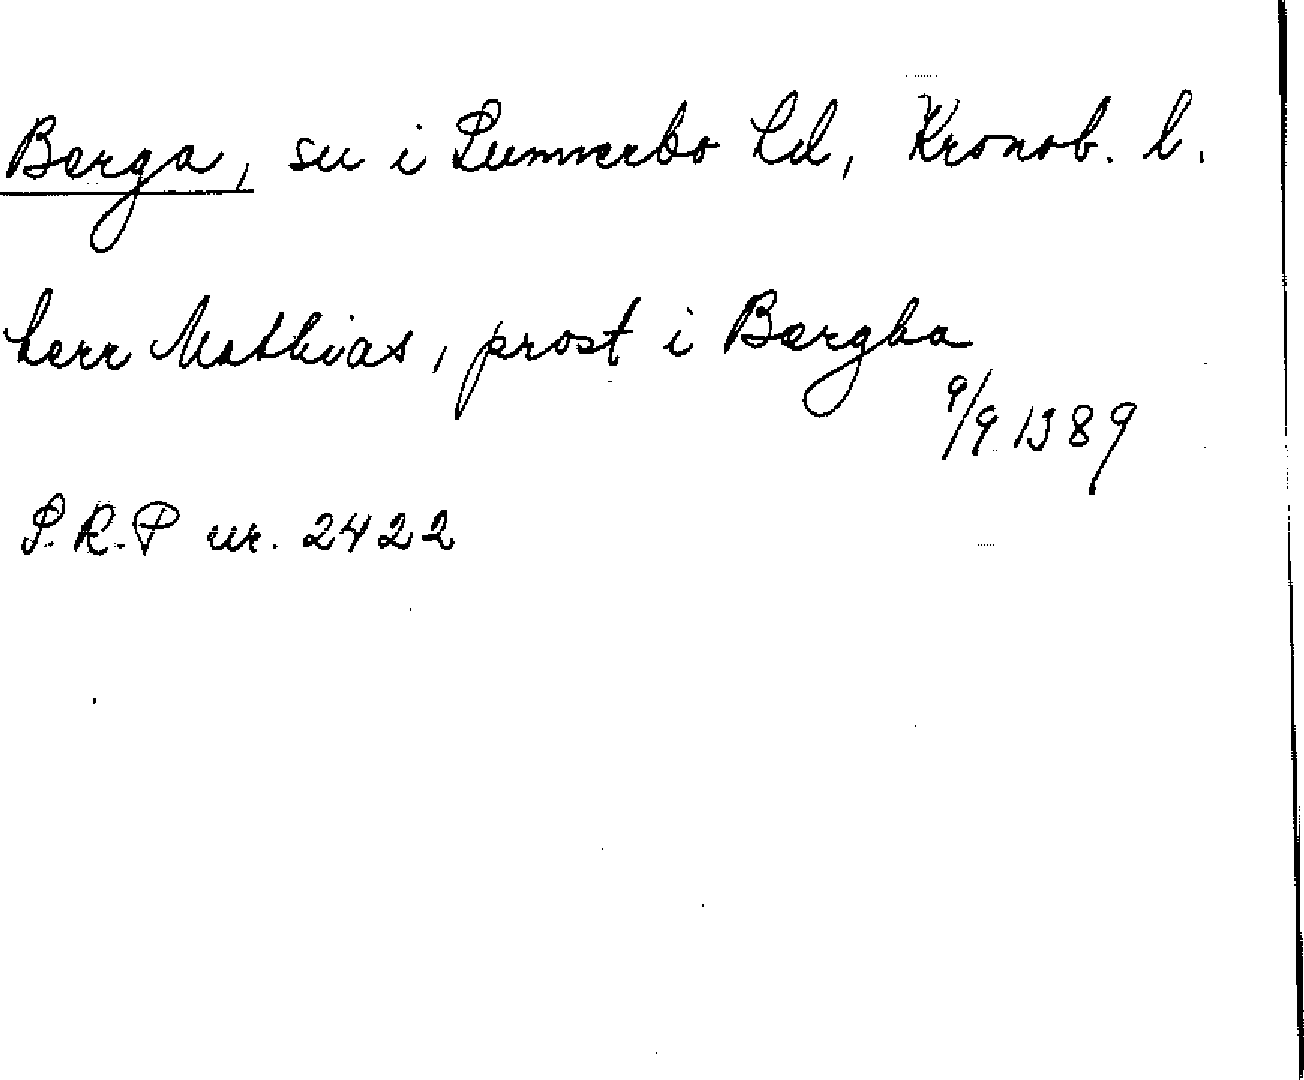 Berga, sn i Sunnerbo hd, Kronob. l.
herr Mathias, prost i Bergha
9/9 1389
S.R.P nr. 2422